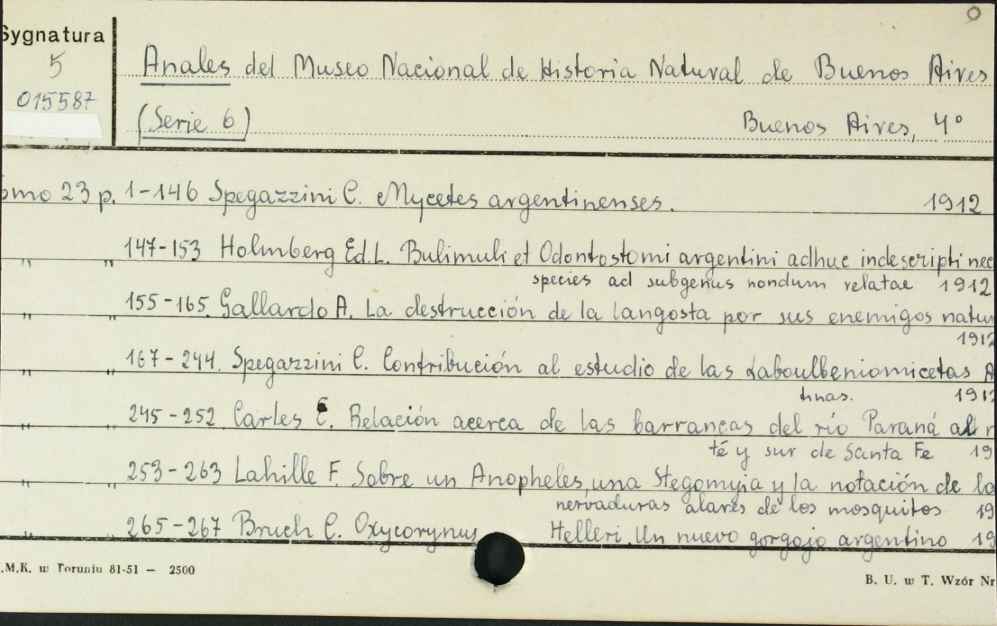 Sygnatura
5
015587
Anales del Museo Nacional de Historia Natural de Buenos Aires
(Serie 6) Buenos Aires, 4°
omo 23 p. 1-146 Spegazzini C. Mycetes argentinenses. 1912
" " 147-153 Holmberg Ed. L. Bulimuli et Odontostomi argentini adhuc indescripti nec
species ad subgenus nondum relatae 1912
" " 155-165. Gallardo A. La destrucción de la langosta por sus enemigos natur
1912
" " 167-244. Spegazzini C. Contribución al estudio de las Laboulbeniomicetas A
tinas. 1912
" " 245-252 Carles C. Relación acerca de las barrancas del río Paraná al r
té y sur de Santa Fe 19
" " 253-263 Lahille F. Sobre un Anopheles, una Stegomyia y la notación de la
nervaduras alares de los mosquitos 19
" " 265-267 Bruch C. Oxycorynus Helleri. Un nuevo gorgojo argentino 19
.M.K. w Toruniu 81-51 — 2500
B. U. w T. Wzór Nr